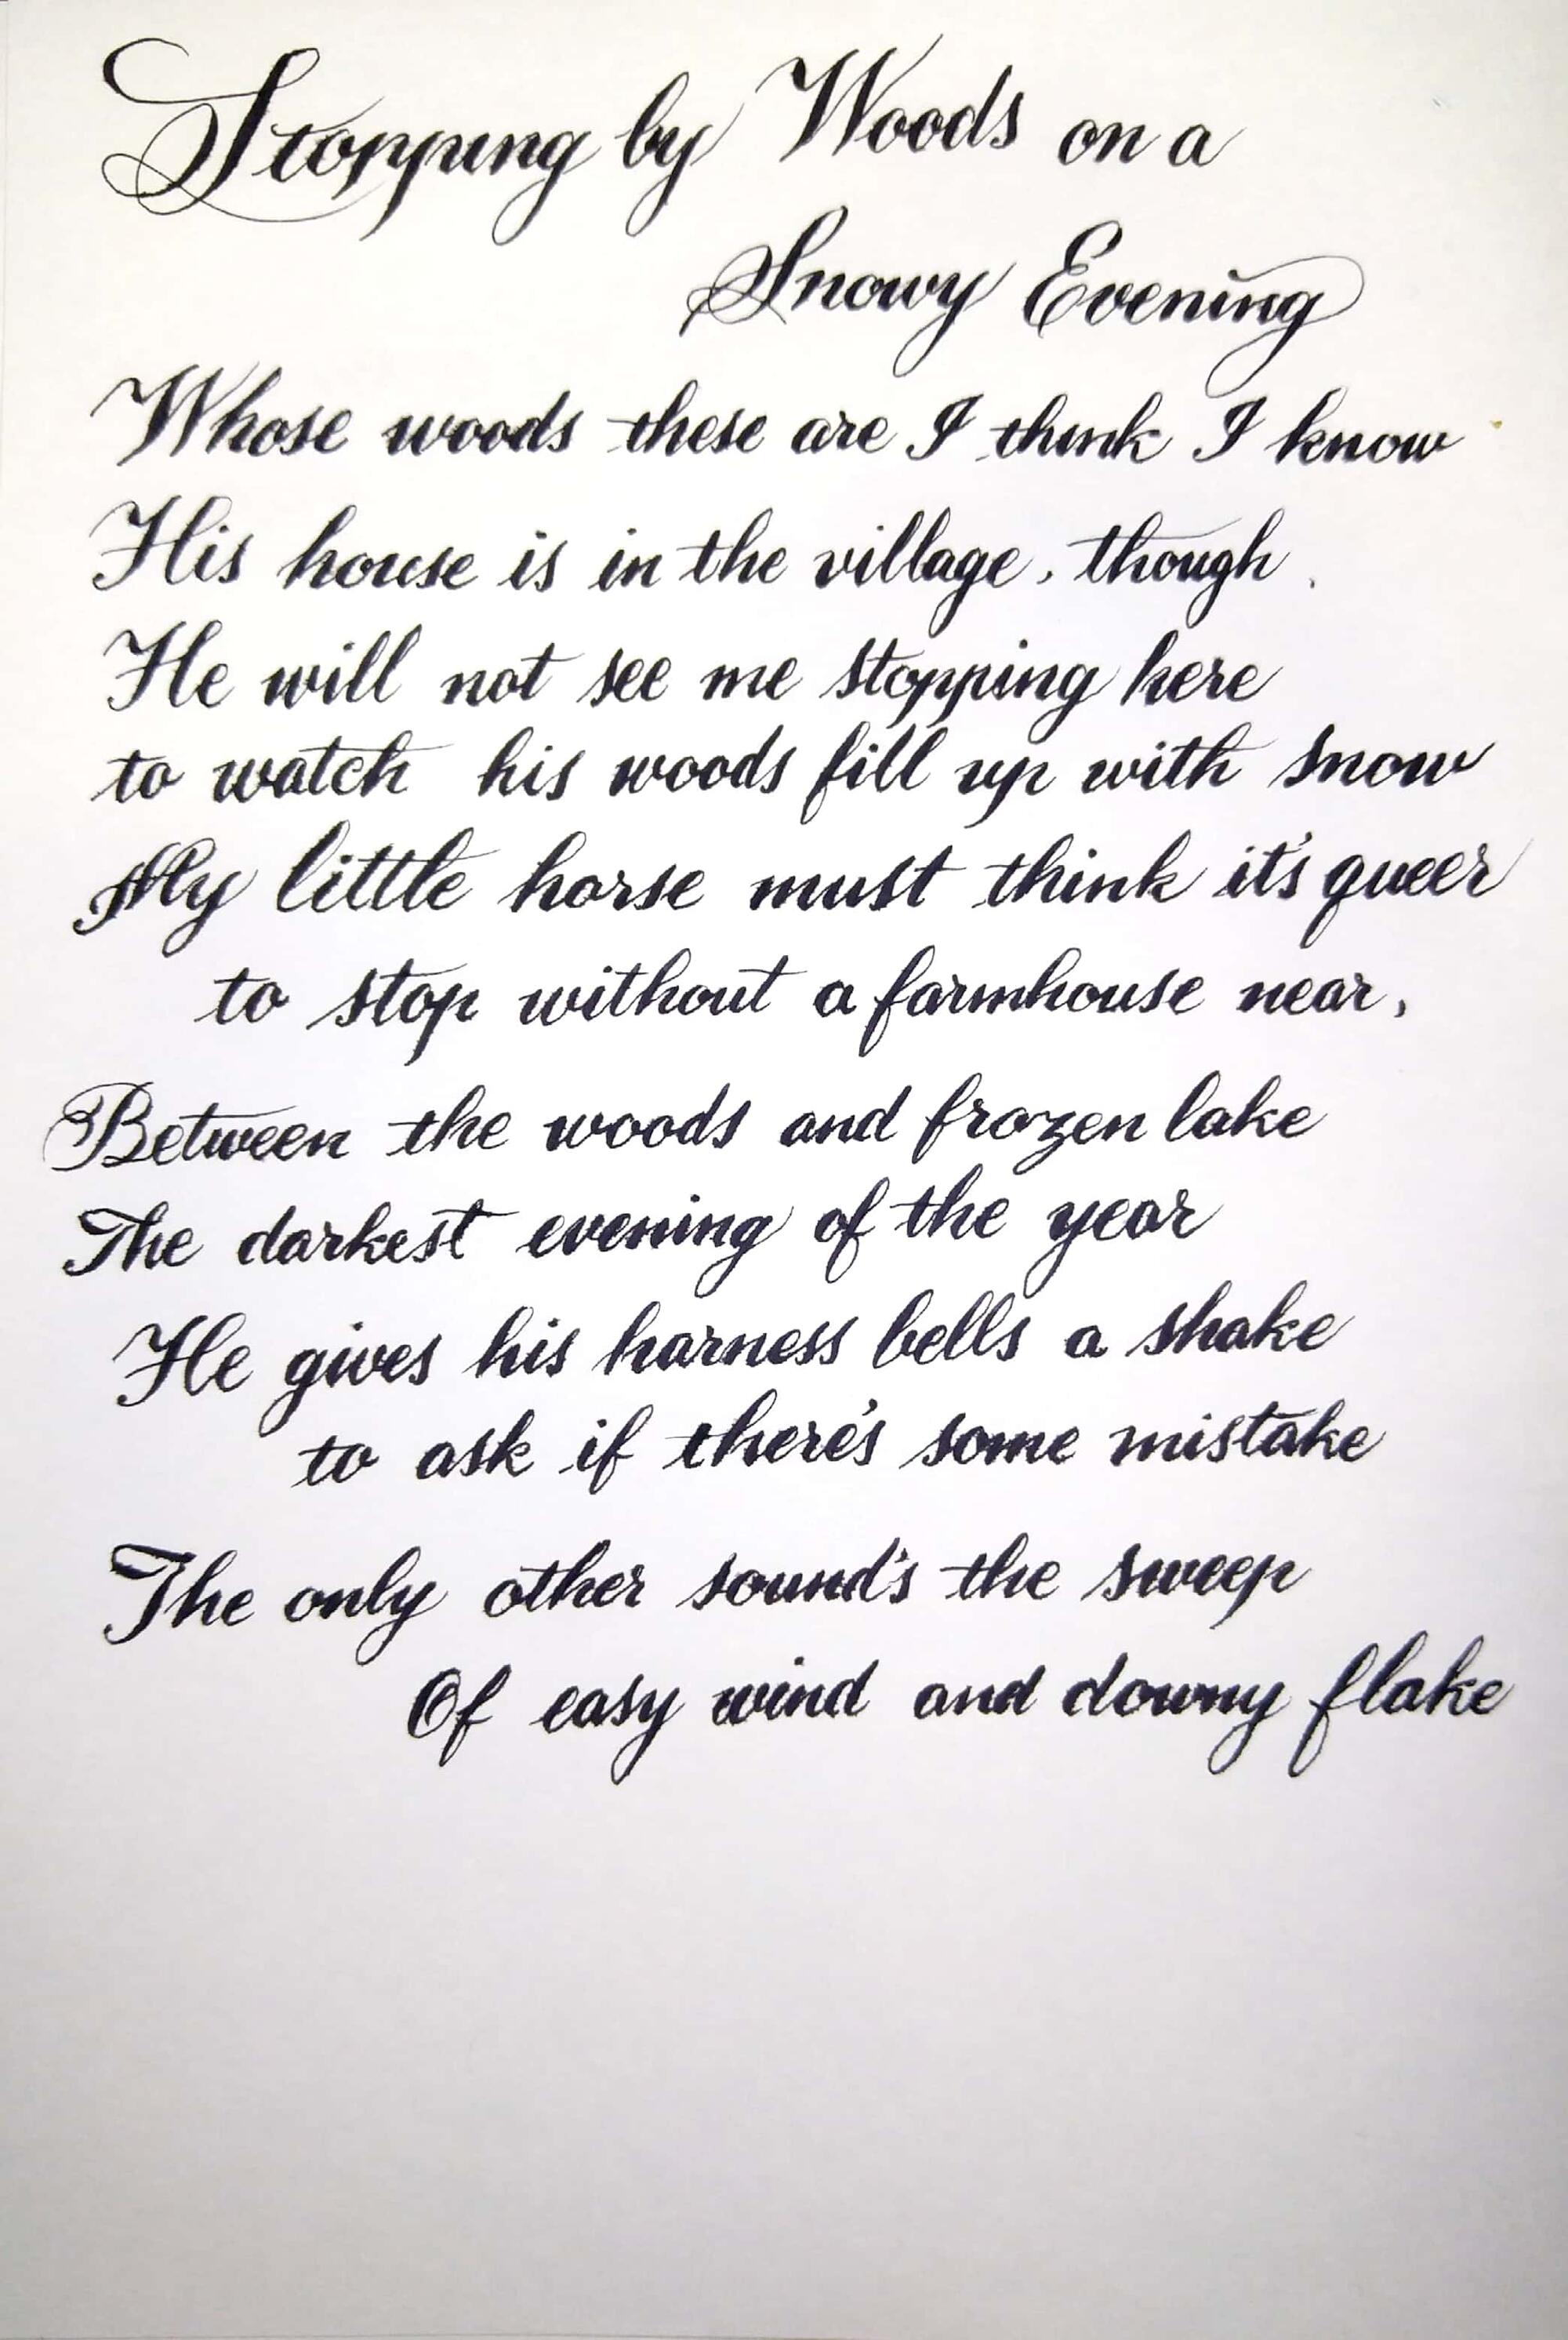 Stopping by Woods on a
Snowy Evening
Whose woods these are I think I know
His house is in the village, though
He will not see me stopping here
to watch his woods fill up with snow
My little horse must think it's queer
to stop without a farmhouse near,
Between the woods and frozen lake
The darkest evening of the year
He gives his harness bells a shake
to ask if there's some mistake
The only other sound's the sweep
Of easy wind and downy flake